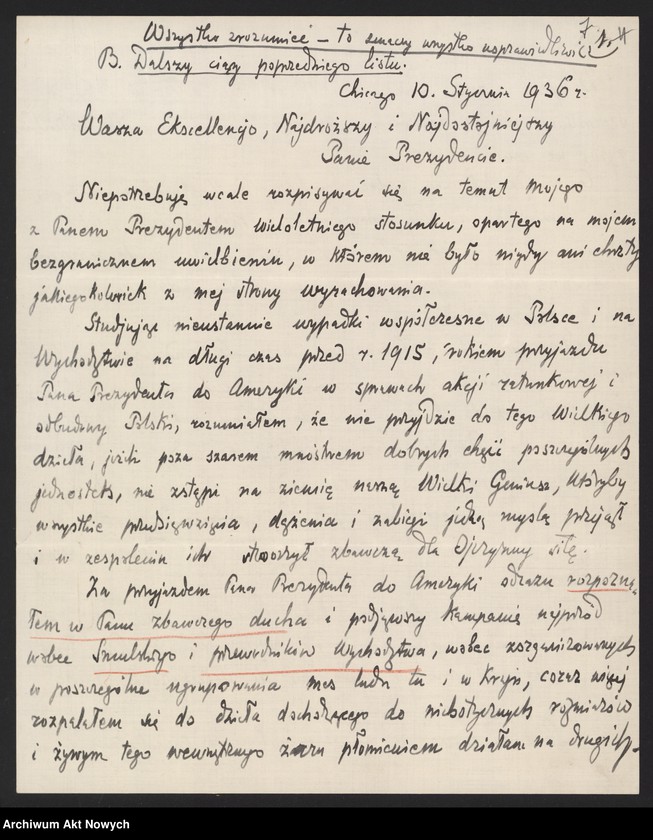 Wszystko zrozumieć – to znaczy wszystko usprawiedliwić
B. Dalszy ciąg poprzedniego listu.
Chicago 10. Stycznia 1936 r.
Wasza Ekscellencjo, Najdroższy i Najdostojniejszy
Panie Prezydencie.
Niepotrzebuję wcale rozpisywać się na temat mojego
z Panem Prezydentem wieloletniego stosunku, opartego na mojem
bezgranicznem uwielbieniu, w którem nie było nigdy ani chwili
jakiegokolwiek z mej strony wyrachowania.
Studjując nieustannie wypadki współczesne w Polsce i na
Wychodztwie na długi czas przed r. 1915, rokiem przyjazdu
Pana Prezydenta do Ameryki w sprawach akcji ratunkowej i
odbudowy Polski, rozumiałem, że nie przyjdzie do tego Wielkiego
dzieła, jeżli poza szarem mnóstwem dobrych chęci poszczególnych
jednostek, nie zstąpi na ziemię naszą Wielki Geniusz, któryby
wszystkie przedsięwzięcia, dążenia i zabiegi jedną myślą przejął
i w zespoleniu ich stworzył zbawczą dla Ojczyzny siłę.
Za przyjazdem Pana Prezydenta do Ameryki odrazu rozpozna-
łem w Panu zbawczego ducha i podjąwszy kampanię najprzód
wobec Smulskiego i przewodników Wychodztwa, wobec zorganizowanych
w poszczególne ugrupowania mas ludu tu i w Kraju, coraz więcej
rozpalałem się do dzieła dochodzącego do niebotycznych rozmiarów
i żywym tego wewnętrznego żaru płomieniem działałem na drugich,
Archiwum Akt Nowych